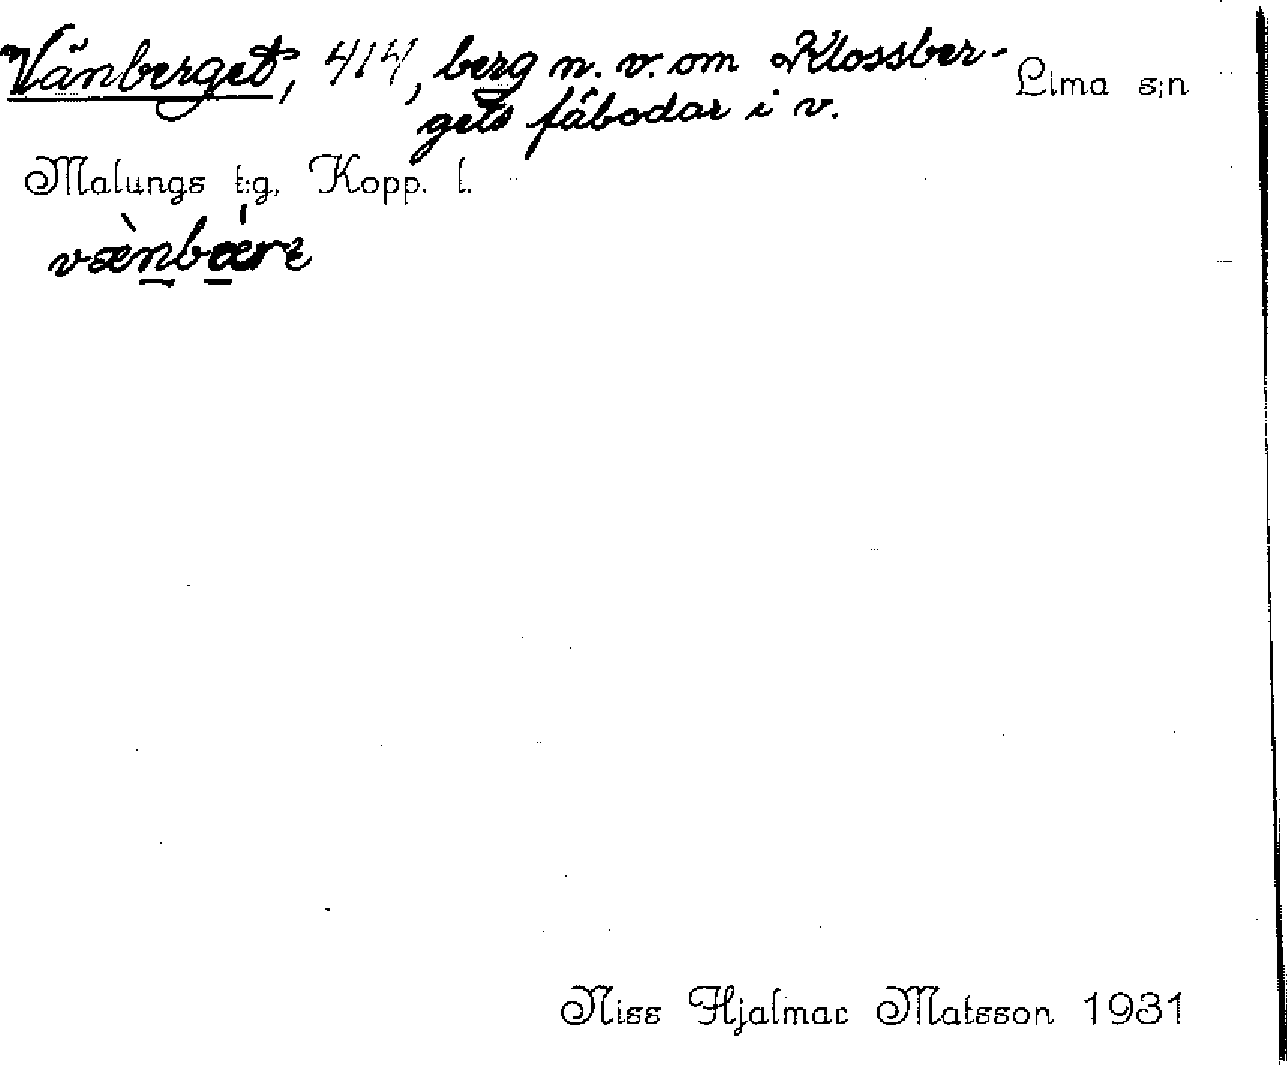 Vänberget, 414, berg n. v. om Klossber-
gets fäbodar i v.
Lima s:n
Malungs t:g, Kopp. l.
væ̀nbǽre
Niss Hjalmar Matsson 1931